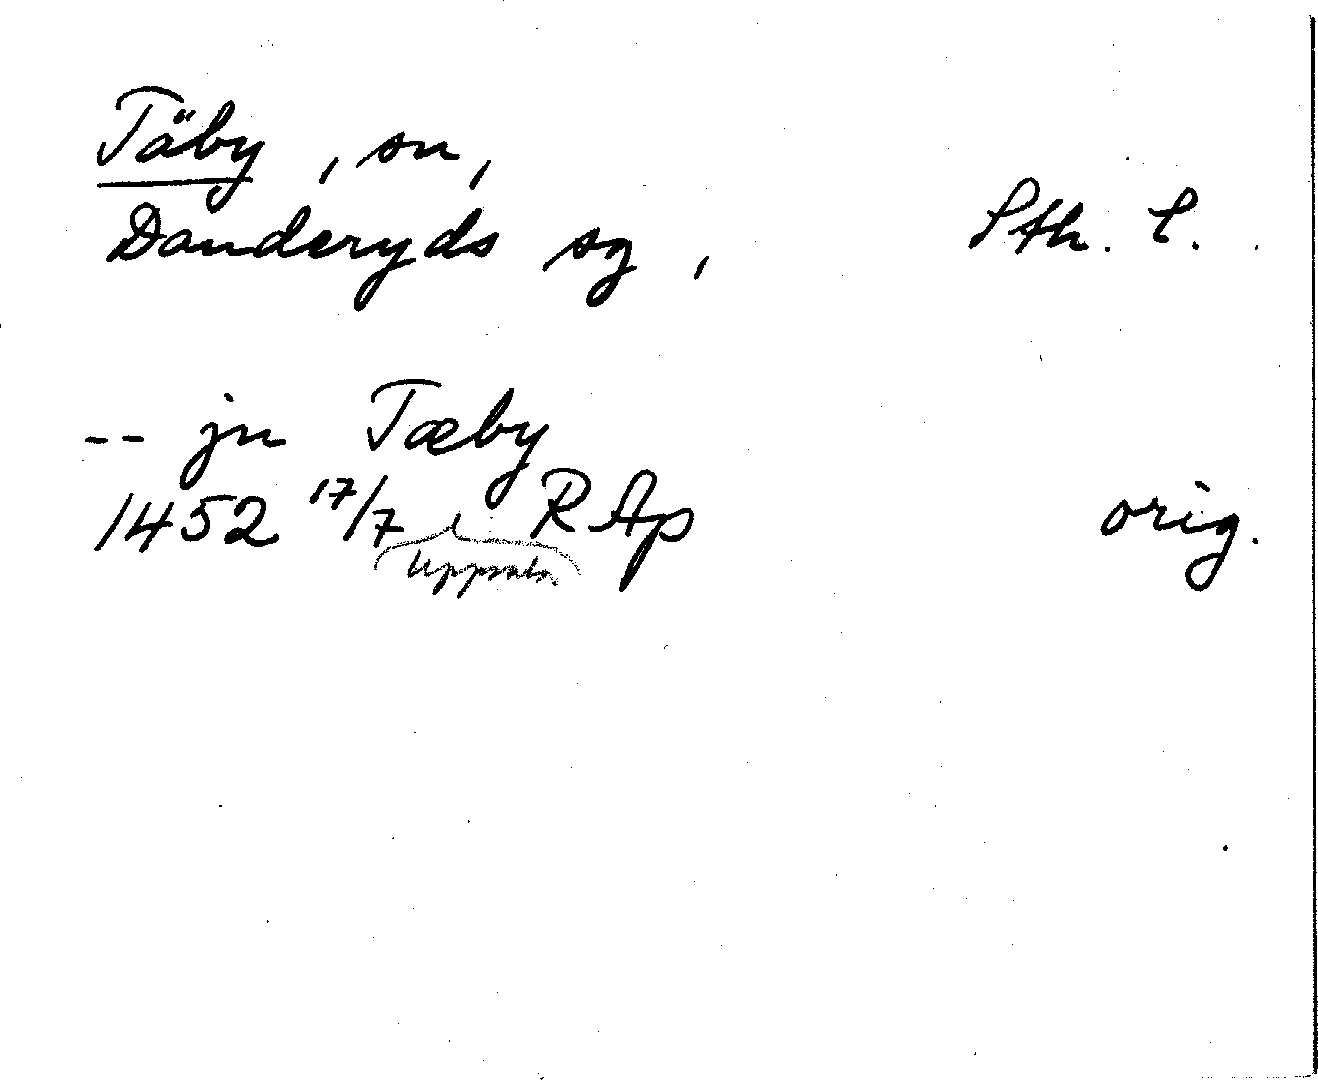 Täby, sn,
Danderyds sg, Sth. l.
-- jn Tæby
1452 17/7 RAp orig.
Uppsala